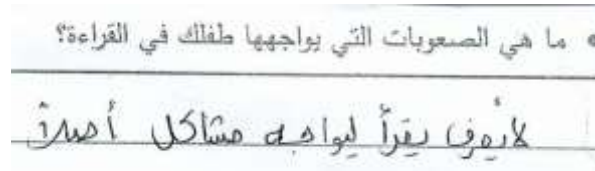 • ما هي الصعوبات التي يواجهها طفلك في القراءة؟
لا يعرف يقرأ ليواجه مشاكل أصلاً